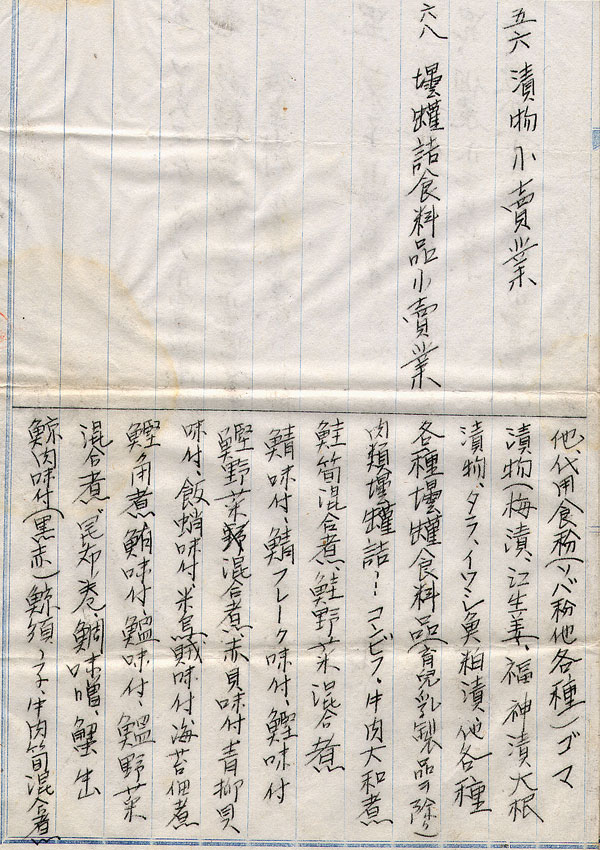 五六 漬物小賣業
六八 壜罐詰食料品小賣業
他、代用食粉(ソバ粉他各種)ゴマ
漬物(梅漬、紅生姜、福神漬大根
漬物、タラ、イワシ魚粕漬他各種
各種壜罐食料品(育児乳製品ヲ除ク)
肉類壜罐詰ーコンビフ、牛肉大和煮
鮭筍混合煮、鮭野菜混合煮
鯖味付、鯖フレーク味付、鰹味付
鰹野菜混合煮、赤貝味付、青柳貝
味付、飯蛸味付、米烏賊味付、海苔佃煮
鰹角煮、鮪味付、鰮味付、鰮野菜
混合煮、昆布巻、鯛味噌、蟹
鯨肉味付(黒赤)鯨須ノ子、牛肉筍混合煮